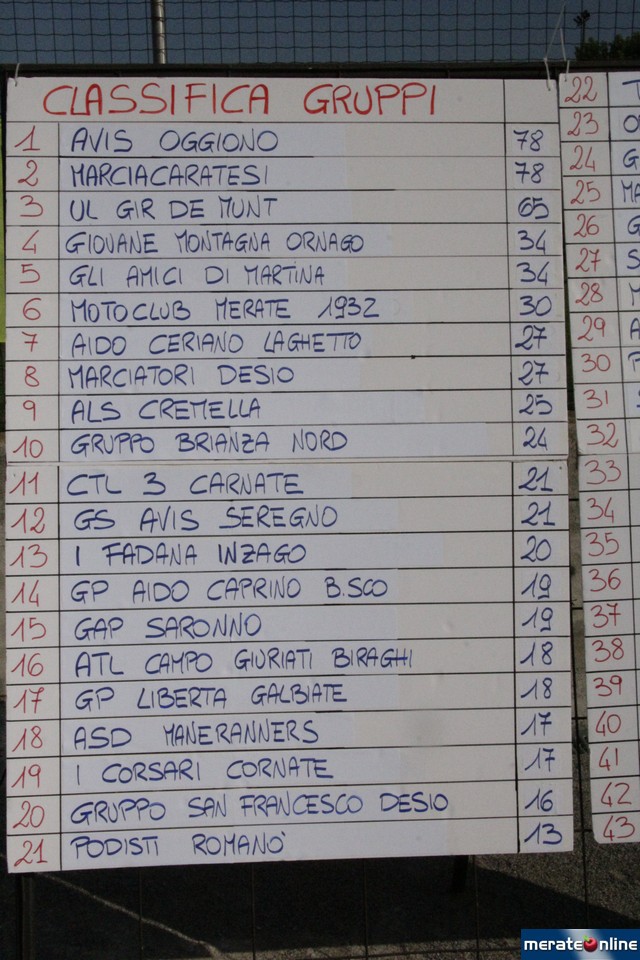 CLASSIFICA GRUPPI
1 AVIS OGGIONO 78
2 MARCIACARATESI 78
3 UL GIR DE MUNT 65
4 GIOVANE MONTAGNA ORNAGO 34
5 GLI AMICI DI MARTINA 34
6 MOTOCLUB MERATE 1932 30
7 AIDO CERIANO LAGHETTO 27
8 MARCIATORI DESIO 27
9 ALS CREMELLA 25
10 GRUPPO BRIANZA NORD 24
11 CTL 3 CARNATE 21
12 GS AVIS SEREGNO 21
13 I FADANA INZAGO 20
14 GP AIDO CAPRINO B.SCO 19
15 GAP SARONNO 19
16 ATL CAMPO GIURIATI BIRAGHI 18
17 GP LIBERTA GALBIATE 18
18 ASD MANERANNERS 17
19 I CORSARI CORNATE 17
20 GRUPPO SAN FRANCESCO DESIO 16
21 PODISTI ROMANO' 13
22
23
24
25
26
27
28
29
30
31
32
33
34
35
36
37
38
39
40
41
42
43
merateonline